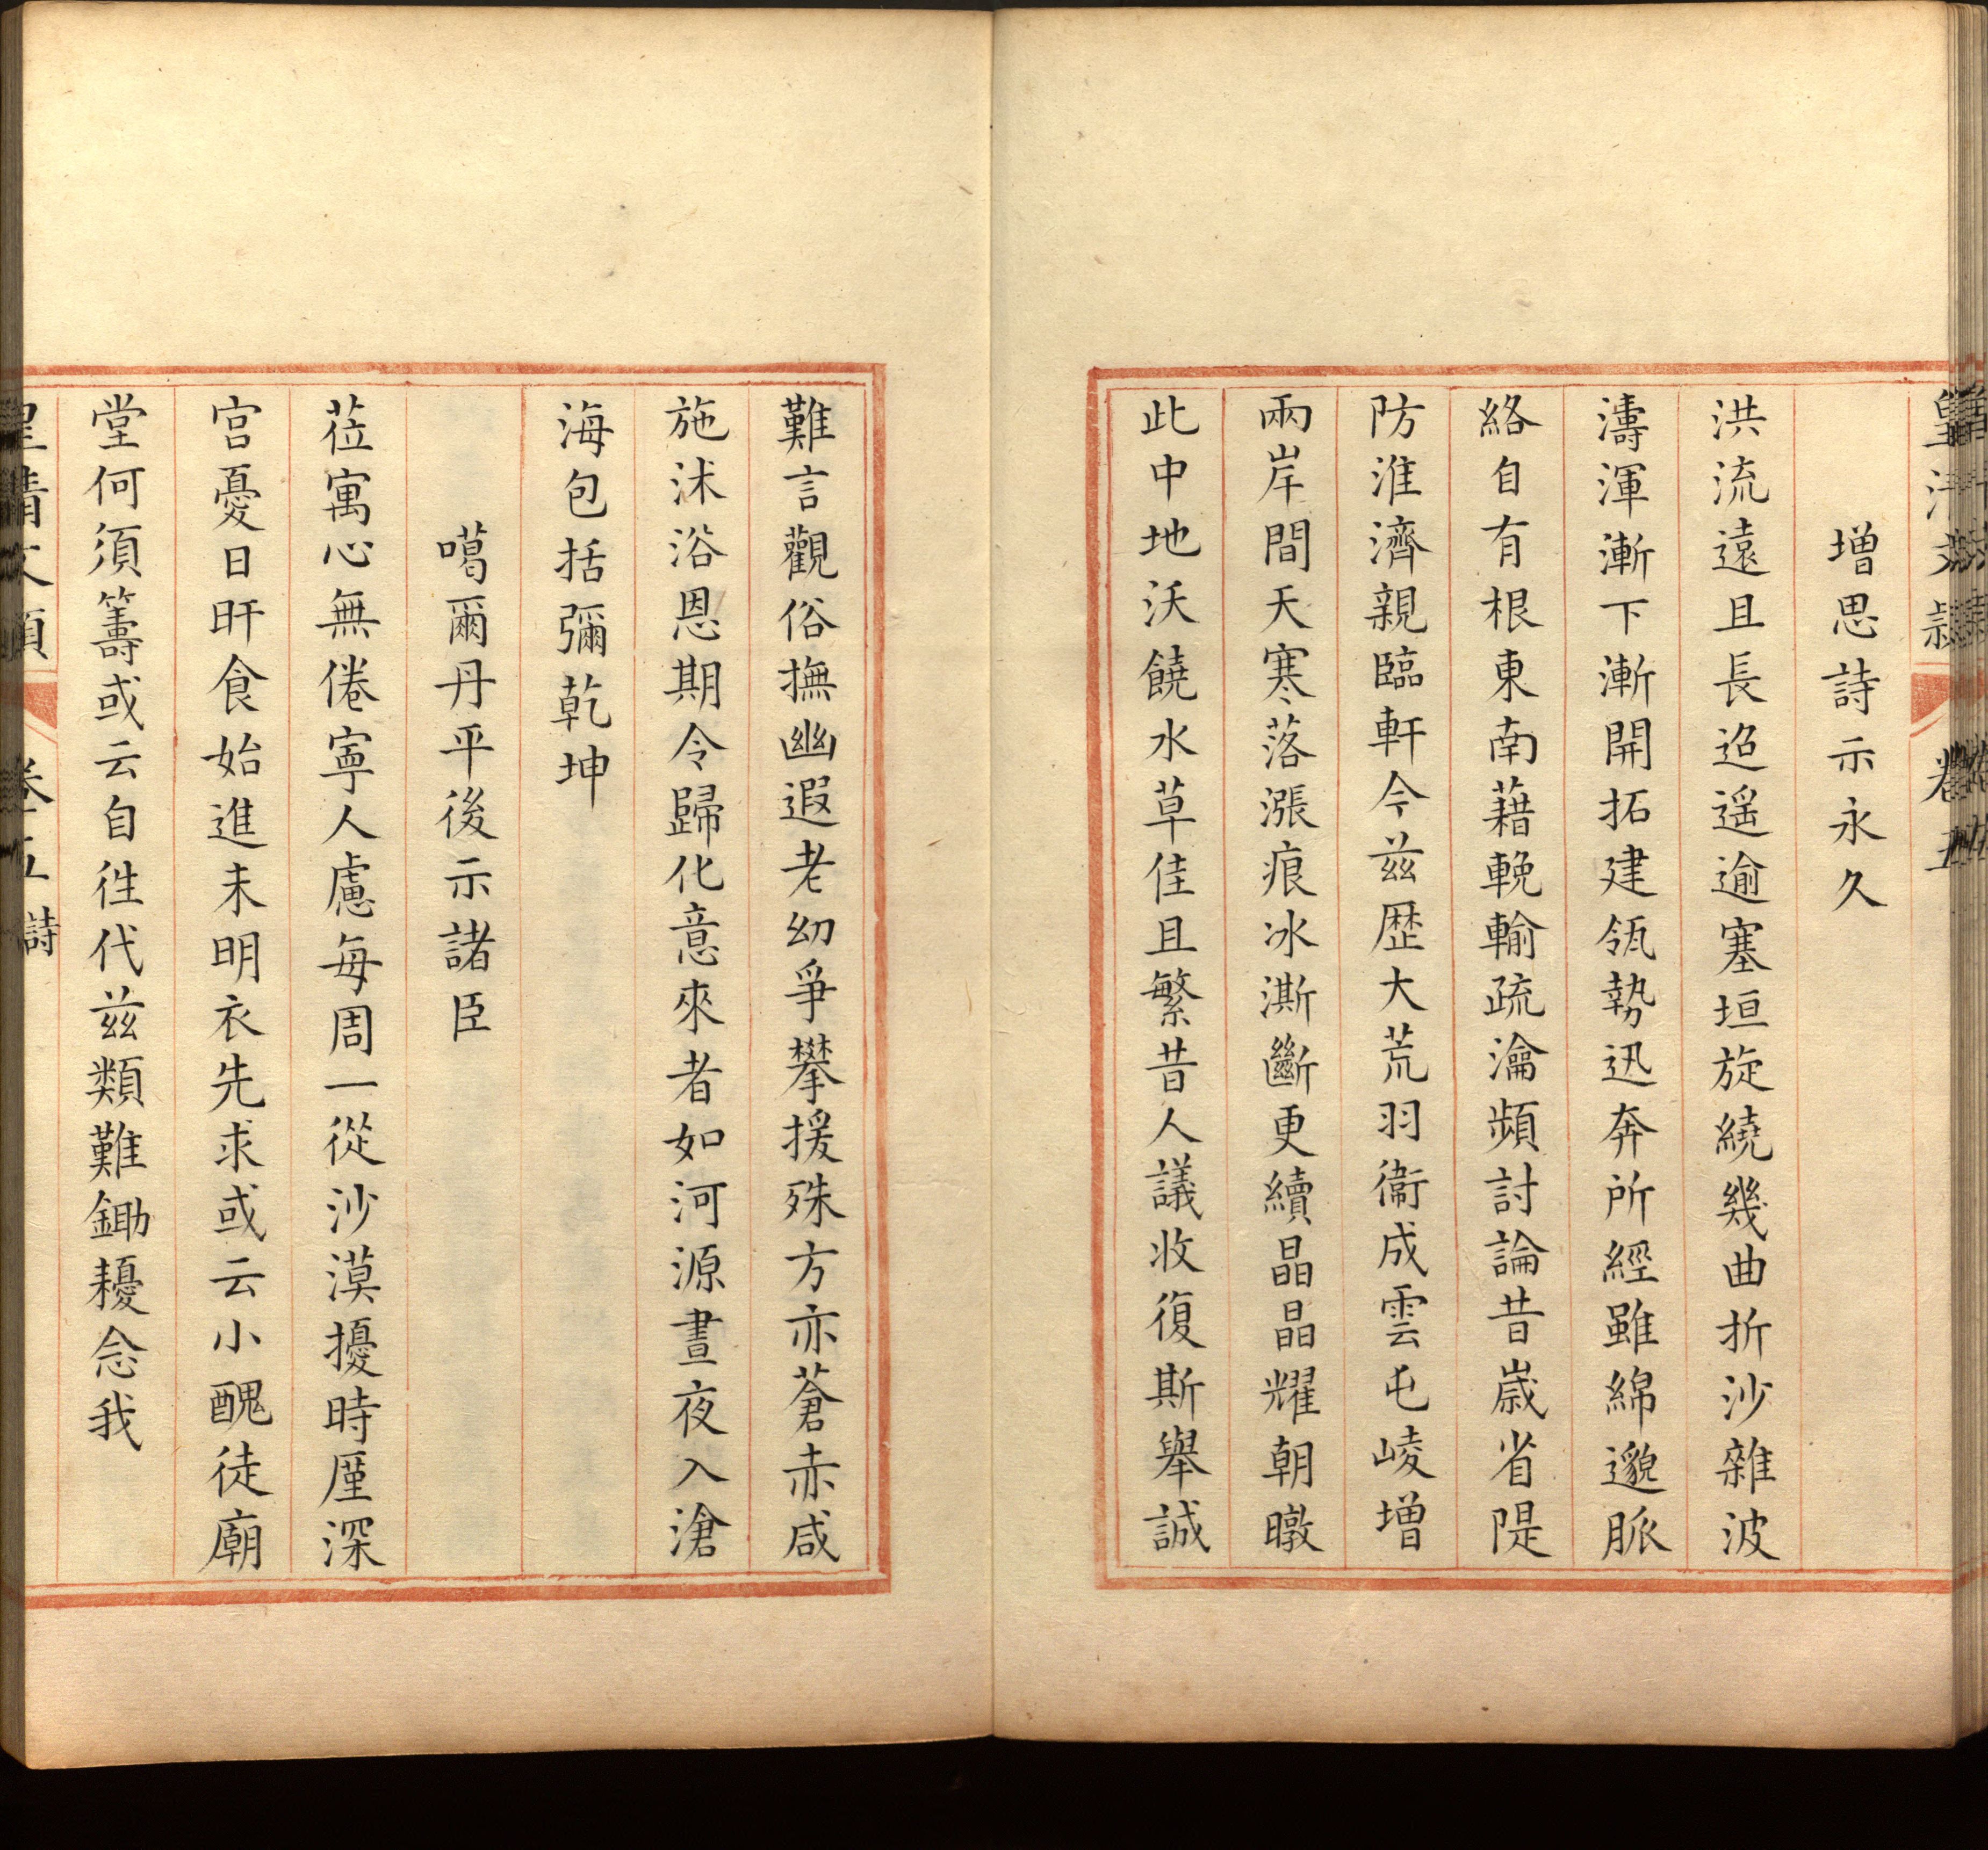 皇清文穎 卷五
增思詩示永久
洪流遠且長迢遥逾塞垣旋繞幾曲折沙雜波
濤渾漸下漸開拓建瓴勢迅奔所經雖綿邈脈
絡自有根東南藉輓輸疏瀹頻討論昔歲省隄
防淮濟親臨軒今兹歷大荒羽衛成雲屯崚增
兩岸間天寒落漲痕冰澌斷更續晶晶耀朝暾
此中地沃饒水草佳且繁昔人議收復斯舉誠
難言觀俗撫幽遐老幼爭攀援殊方亦蒼赤咸
施沐浴恩期令歸化意來者如河源晝夜入滄
海包括彌乾坤
噶爾丹平後示諸臣
莅寓心無倦寧人慮每周一從沙漠擾時厪深
宮憂日旰食始進未明衣先求或云小醜徒廟
堂何須籌或云自徃代兹類難鋤耰念我
皇清文穎 卷五 詩